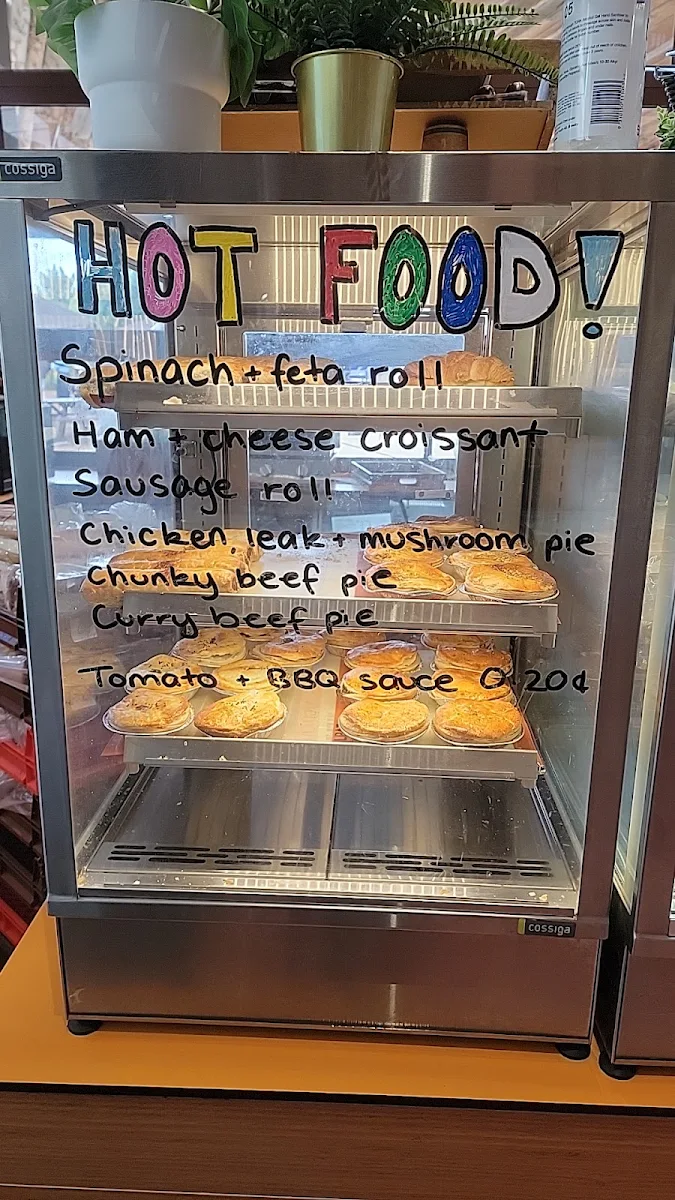 cossiga
HOT FOOD!
Spinach + feta roll
Ham + cheese croissant
Sausage roll
Chicken, leak + mushroom pie
Chunky beef pie
Curry beef pie
Tomato + BBQ sauce 0.20¢
cossiga